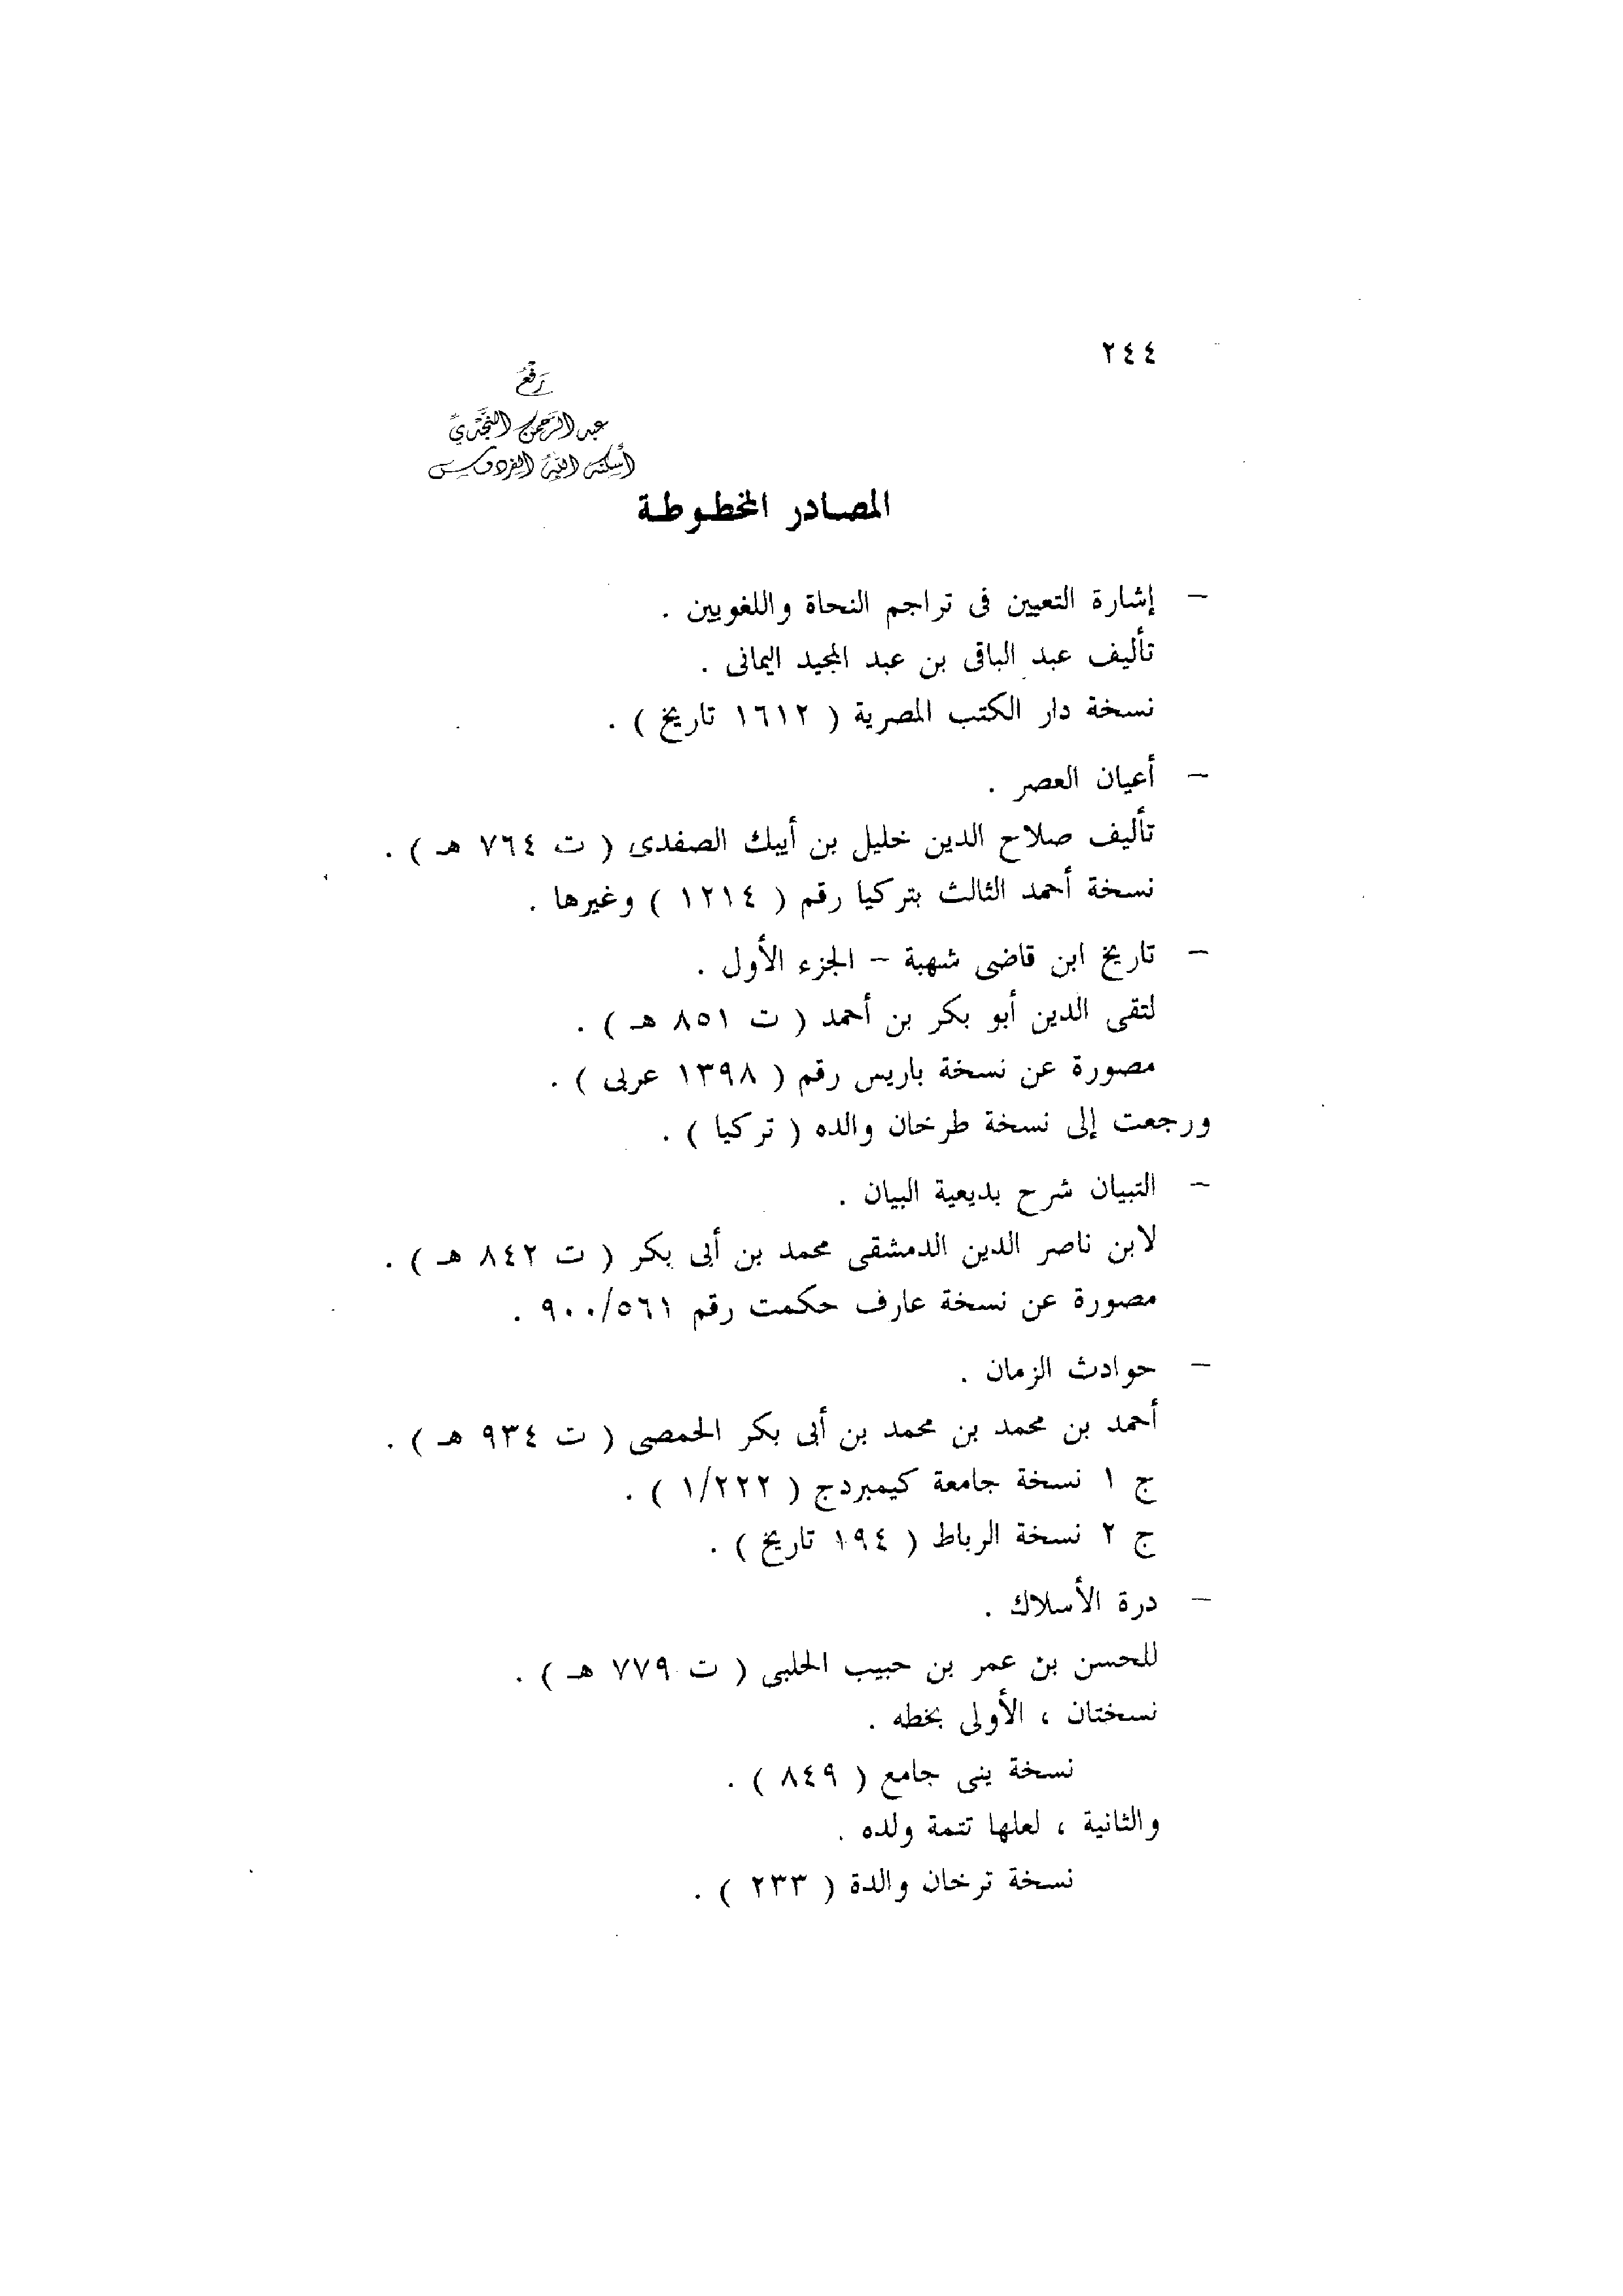 ٢٤٤
رفع
عبد الرحمن النجدي
أسكنه الله الفردوس
المصادر المخطوطة
– إشارة التعيين فى تراجم النحاة واللغويين .
تأليف عبد الباقى بن عبد المجيد اليمانى .
نسخة دار الكتب المصرية ( ١٦١٢ تاريخ ) .
– أعيان العصر .
تأليف صلاح الدين خليل بن أيبك الصفدى ( ت ٧٦٤ هـ ) .
نسخة أحمد الثالث بتركيا رقم ( ١٢١٤ ) وغيرها .
– تاريخ ابن قاضى شهبة – الجزء الأول .
لتقى الدين أبو بكر بن أحمد ( ت ٨٥١ هـ ) .
مصورة عن نسخة باريس رقم ( ١٣٩٨ عربى ) .
ورجعت إلى نسخة طرخان والده ( تركيا ) .
– التبيان شرح بديعية البيان .
لابن ناصر الدين الدمشقى محمد بن أبى بكر ( ت ٨٤٢ هـ ) .
مصورة عن نسخة عارف حكمت رقم ٩٠٠/٥٦١ .
– حوادث الزمان .
أحمد بن محمد بن محمد بن أبى بكر الحمصى ( ت ٩٣٤ هـ ) .
ج ١ نسخة جامعة كيمبردج ( ١/٢٢٢ ) .
ج ٢ نسخة الرباط ( ١٩٤ تاريخ ) .
– درة الأسلاك .
للحسن بن عمر بن حبيب الحلبى ( ت ٧٧٩ هـ ) .
نسختان ، الأولى بخطه .
نسخة ينى جامع ( ٨٤٩ ) .
والثانية ، لعلها تتمة ولده .
نسخة ترخان والدة ( ٢٣٣ ) .